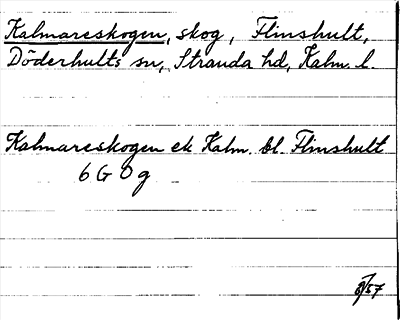 Kalmareskogen, skog, Flinshult,
Döderhults sn, Stranda hd, Kalm. l.
Kalmareskogen ek Kalm. bl. Flinshult
6 G 0 g
8/57